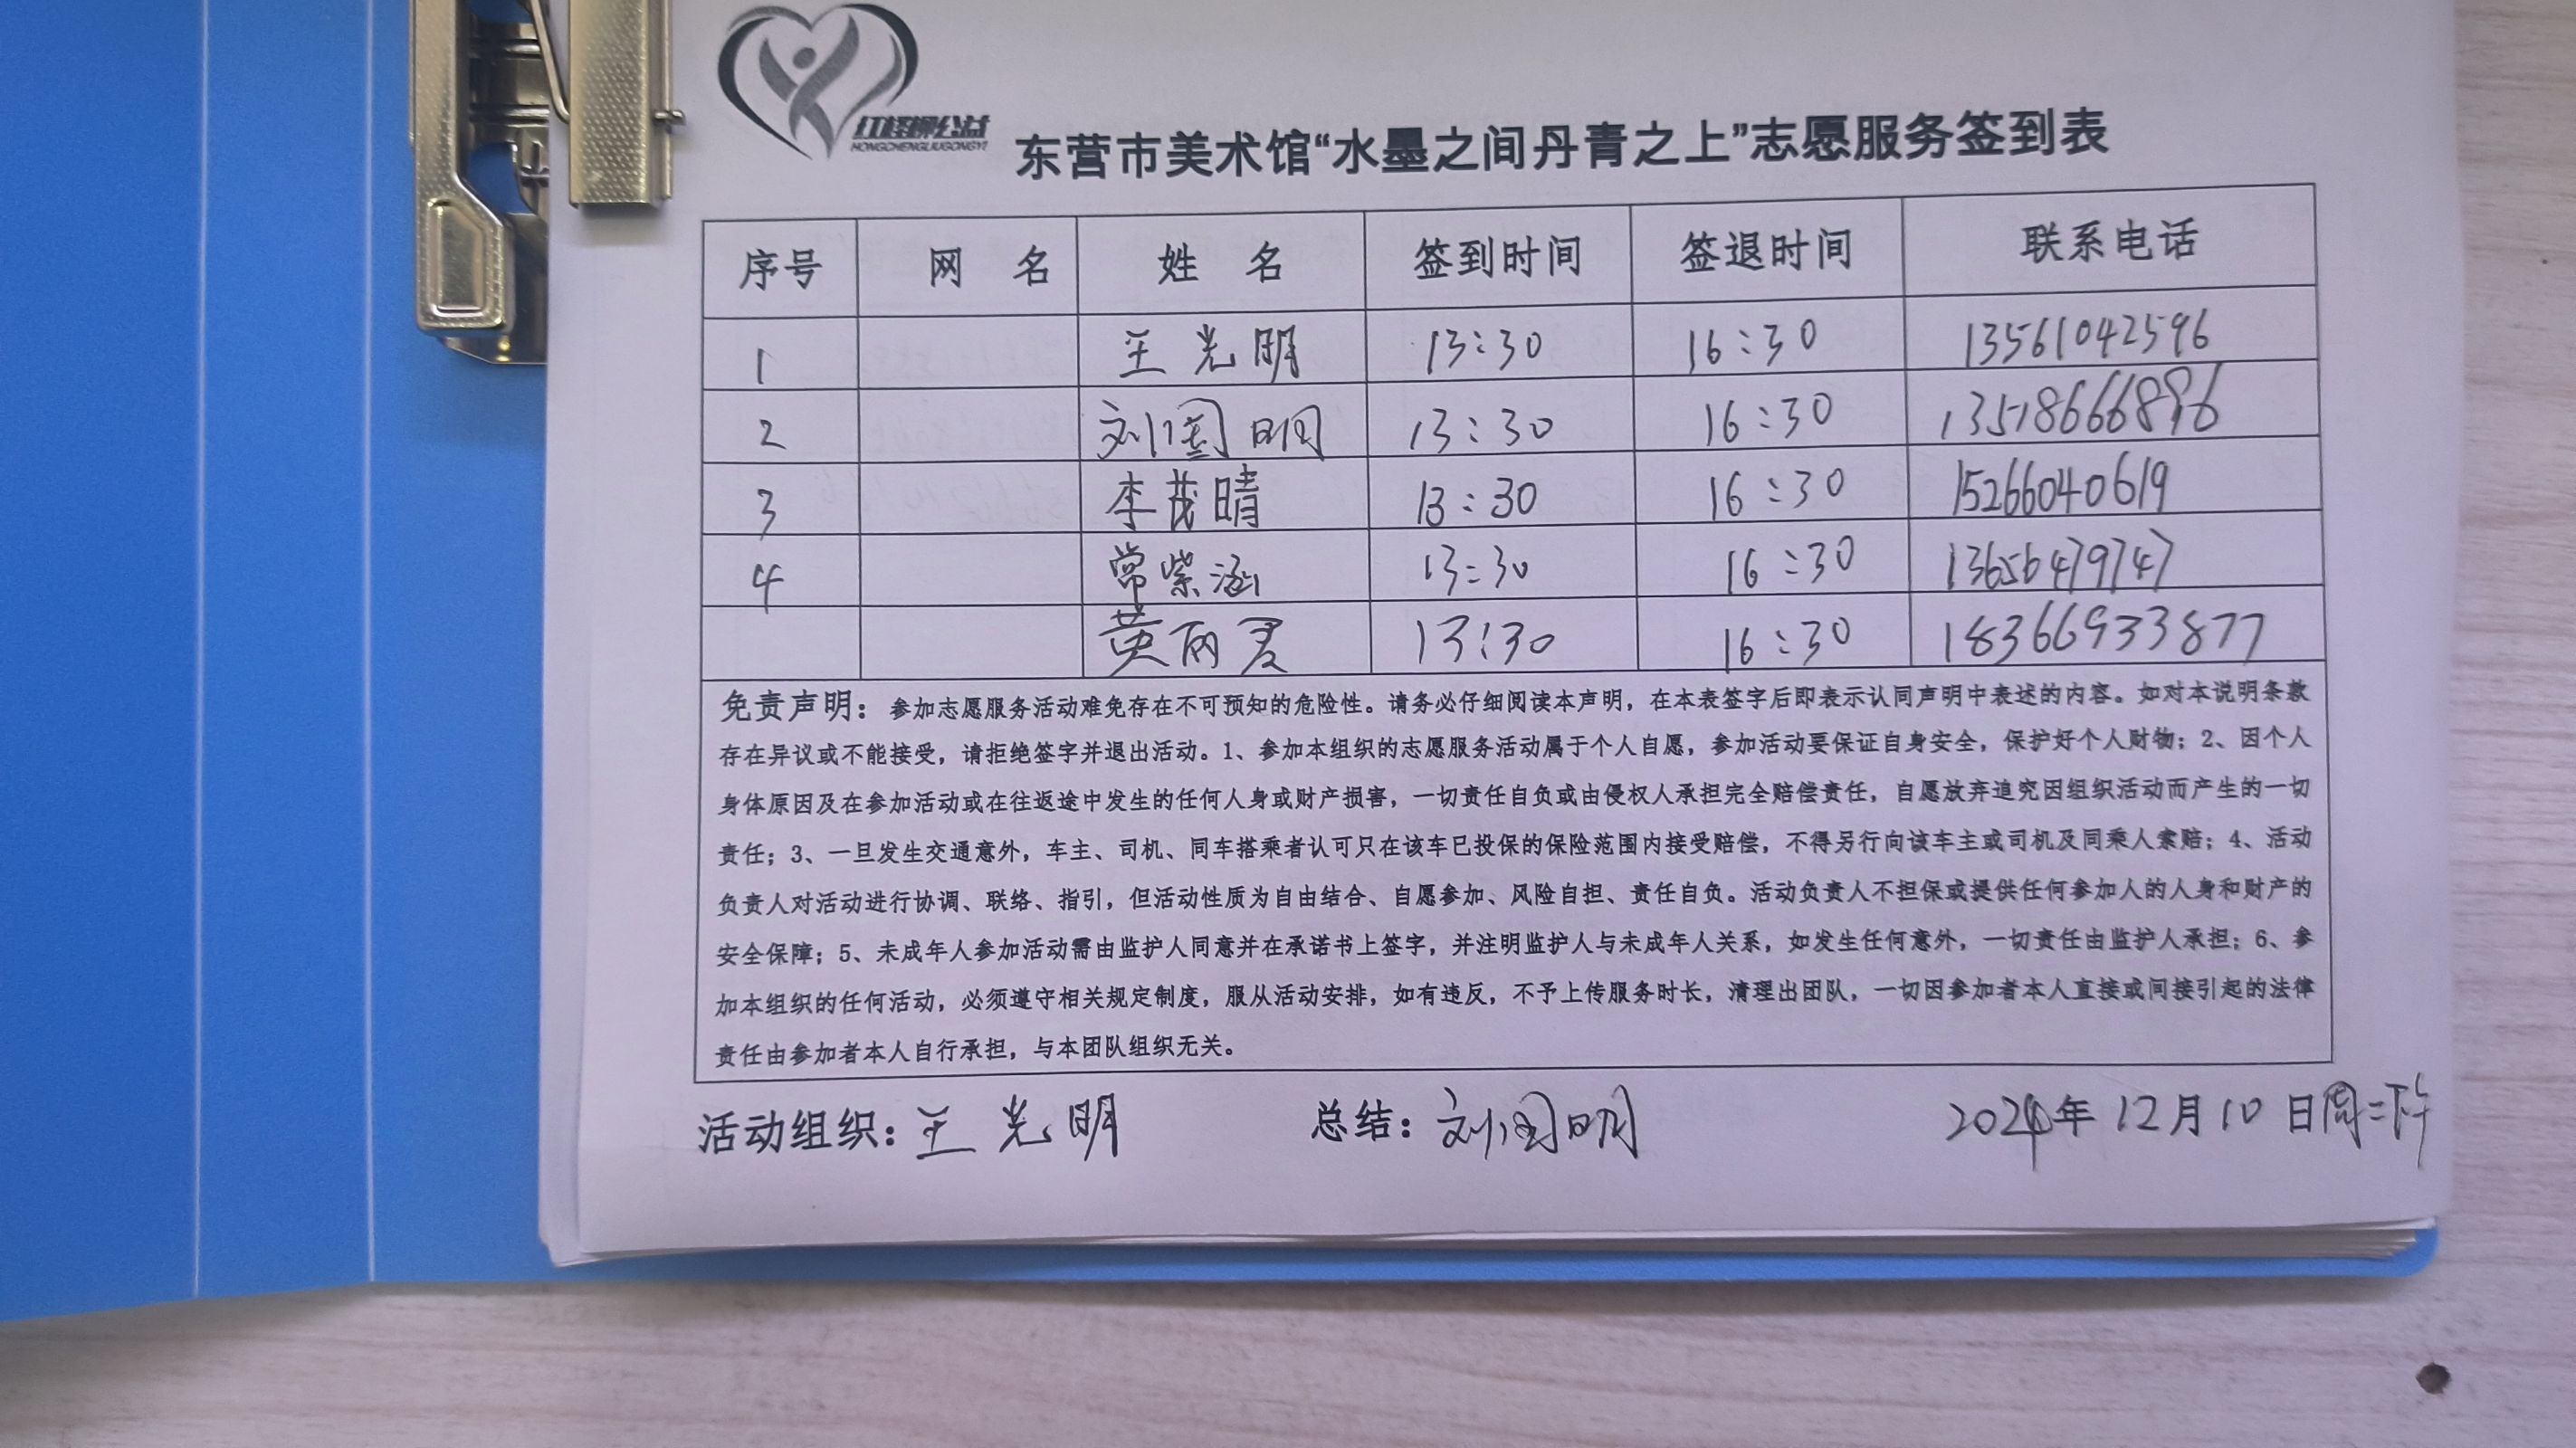 红柽柳公益
HONGCHENGLIUGONGYI
东营市美术馆“水墨之间丹青之上”志愿服务签到表
序号 网 名 姓 名 签到时间 签退时间 联系电话
1 王光明 13:30 16:30 13561042596
2 刘国明 13:30 16:30 13518666896
3 李茂晴 13:30 16:30 15266040619
4 常紫涵 13:30 16:30 13656479747
黄丽君 13:30 16:30 18366933877
免责声明：参加志愿服务活动难免存在不可预知的危险性。请务必仔细阅读本声明，在本表签字后即表示认同声明中表述的内容。如对本说明条款
存在异议或不能接受，请拒绝签字并退出活动。1、参加本组织的志愿服务活动属于个人自愿，参加活动要保证自身安全，保护好个人财物；2、因个人
身体原因及在参加活动或在往返途中发生的任何人身或财产损害，一切责任自负或由侵权人承担完全赔偿责任，自愿放弃追究因组织活动而产生的一切
责任；3、一旦发生交通意外，车主、司机、同车搭乘者认可只在该车已投保的保险范围内接受赔偿，不得另行向该车主或司机及同乘人索赔；4、活动
负责人对活动进行协调、联络、指引，但活动性质为自由结合、自愿参加、风险自担、责任自负。活动负责人不担保或提供任何参加人的人身和财产的
安全保障；5、未成年人参加活动需由监护人同意并在承诺书上签字，并注明监护人与未成年人关系，如发生任何意外，一切责任由监护人承担；6、参
加本组织的任何活动，必须遵守相关规定制度，服从活动安排，如有违反，不予上传服务时长，清理出团队，一切因参加者本人直接或间接引起的法律
责任由参加者本人自行承担，与本团队组织无关。
活动组织：王光明 总结：刘国明 2024年12月10日周二下午